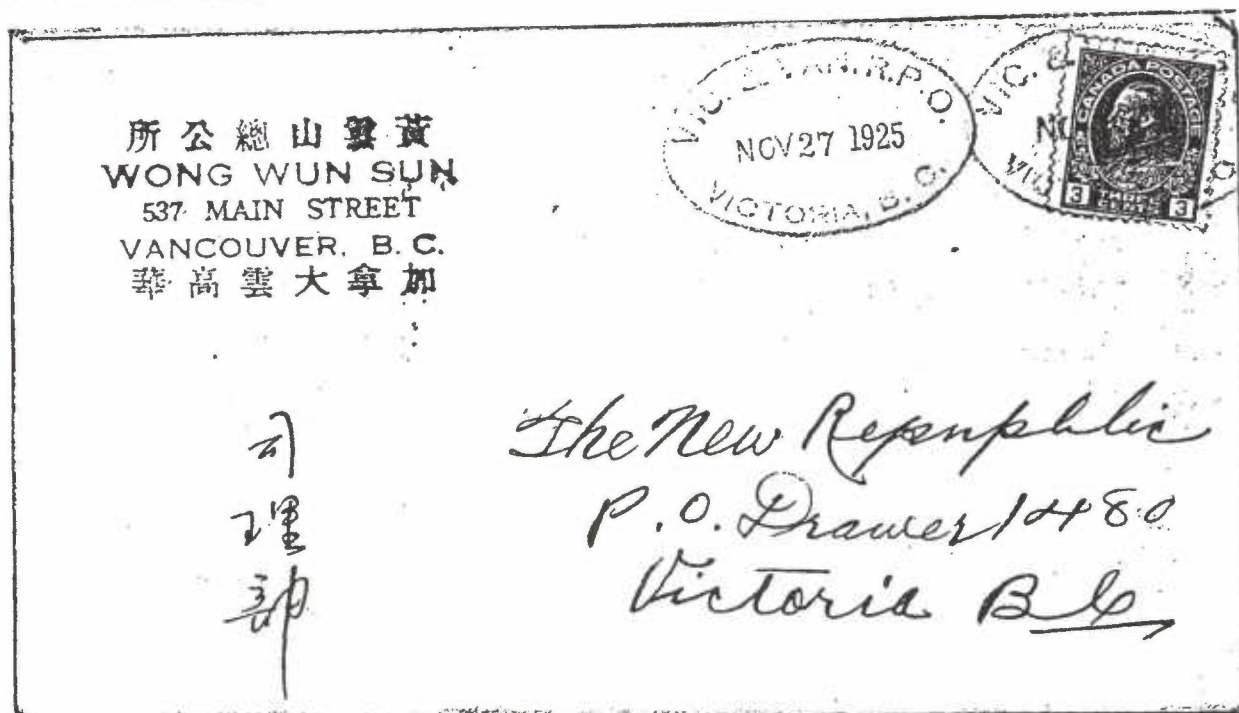 黃雲山總公所
WONG WUN SUN
537 MAIN STREET
VANCOUVER, B. C.
加拿大雲高華
VIC. & VAN. R.P.O.
NOV 27 1925
VICTORIA, B. C.
VIC. &
NO
VIC
CANADA POSTAGE
3 CENTS 3
司理部
The New Repuphlic
P.O. Drawer 1480
Victoria B C